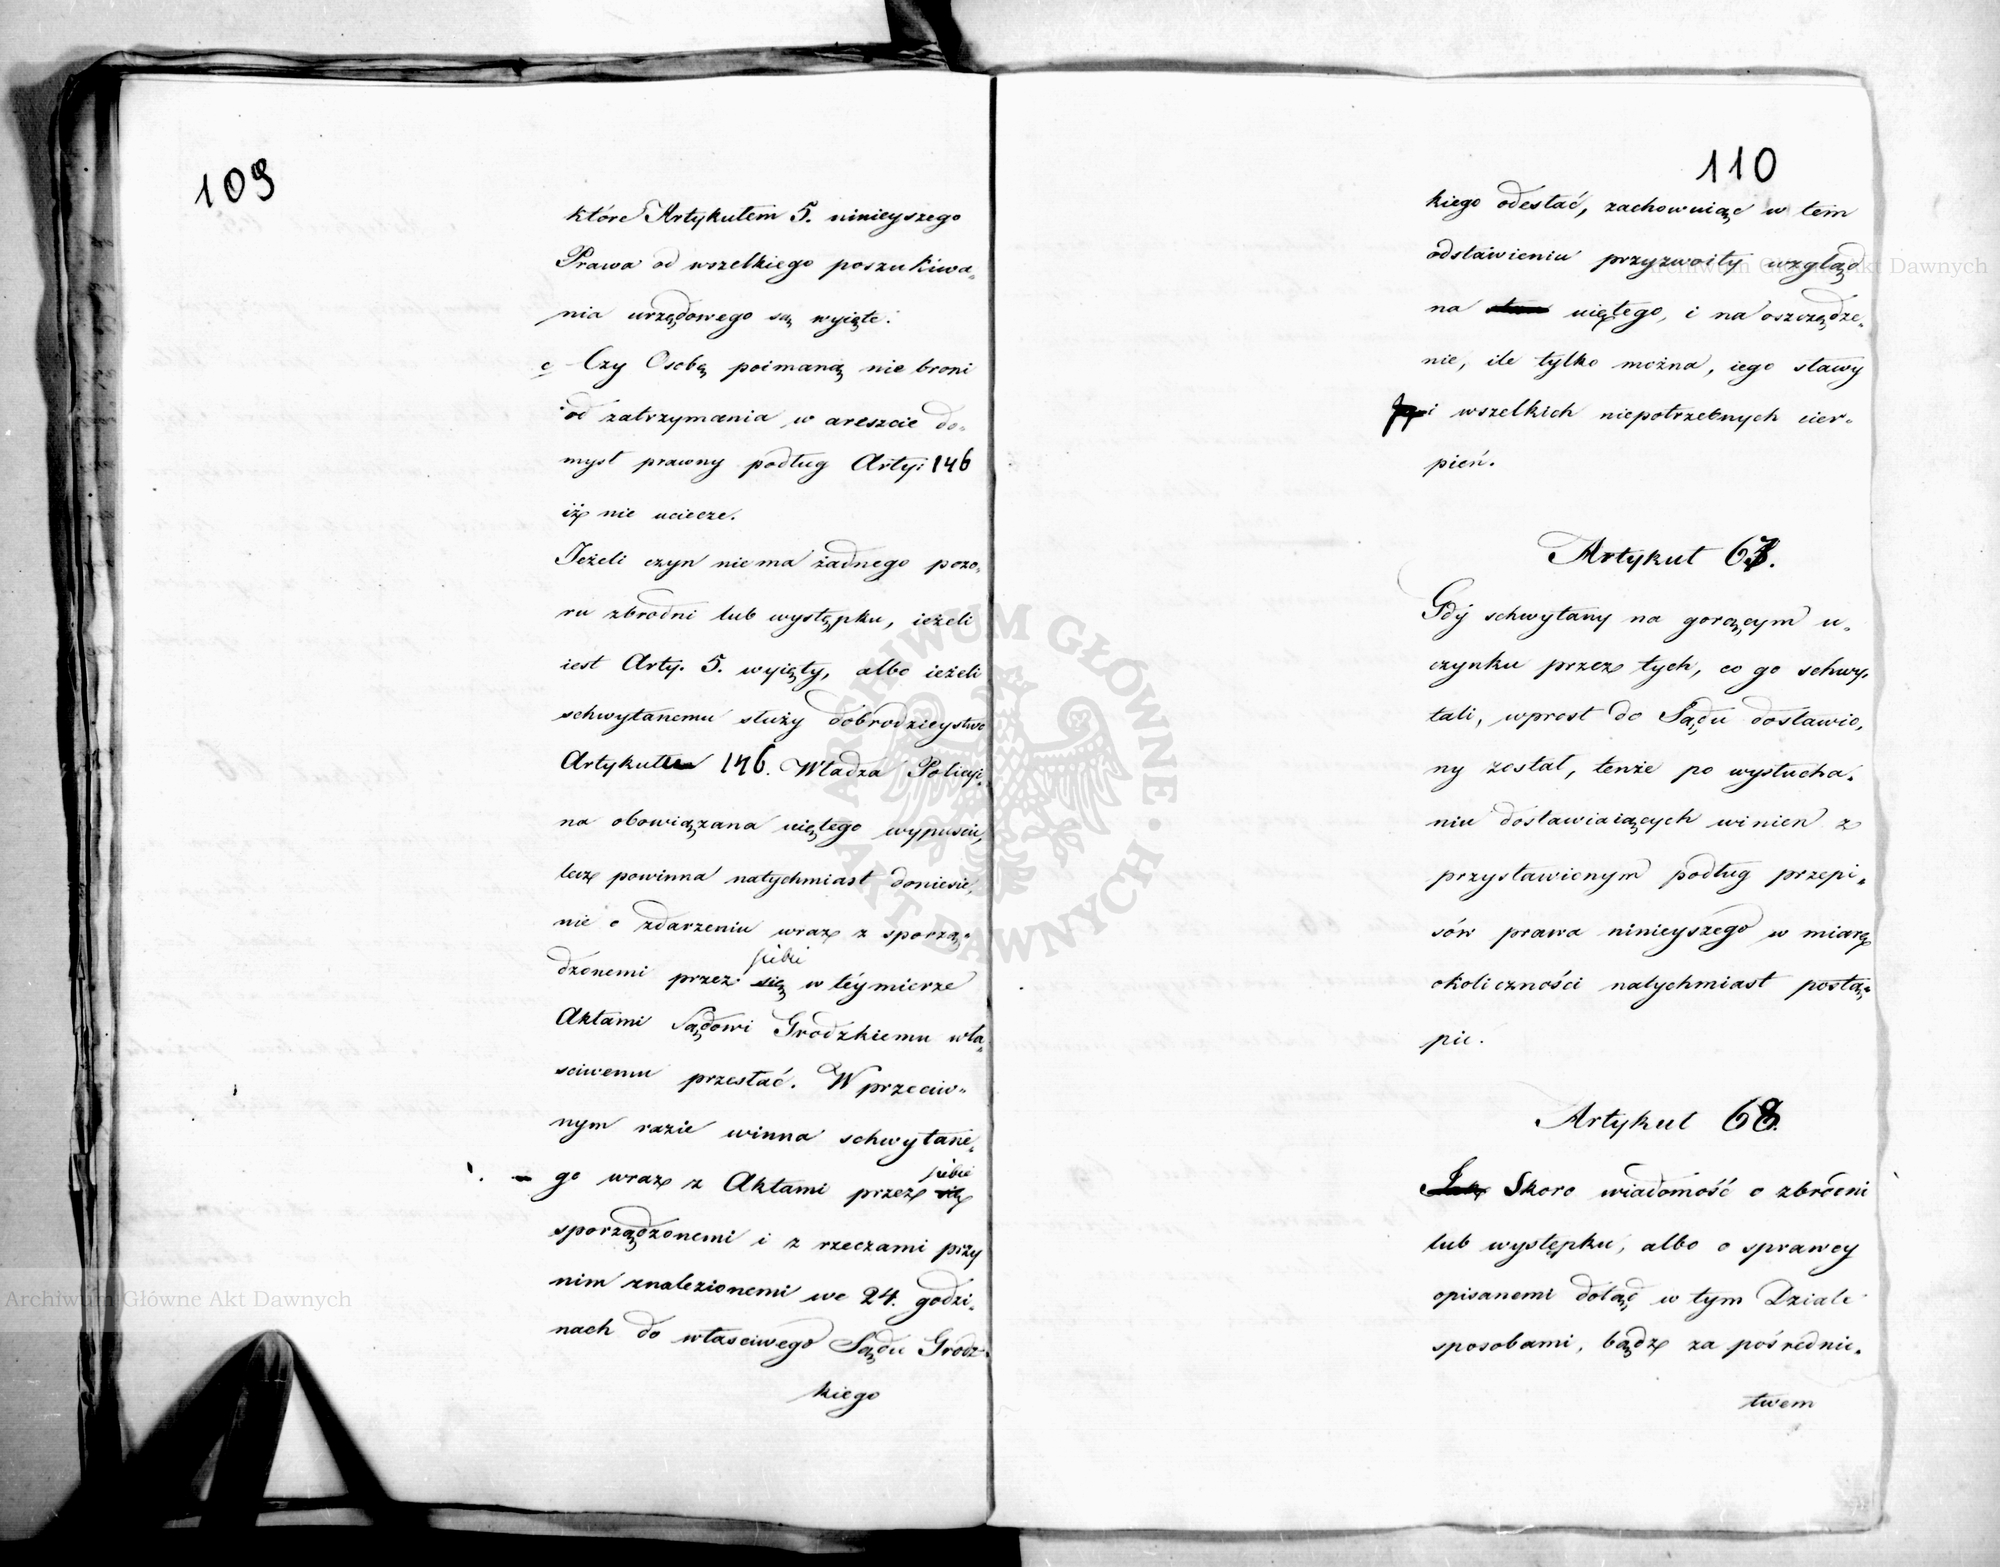 109
które Artykułem 5. ninieyszego
Prawa od wszelkiego poszukiwa-
nia urzędowego są wyięte.
c Czy Osobą poimaną nie broni
od zatrzymania w areszcie do-
mysł prawny podług Arty: 146
iż nie uciecze.
Ieżeli czyn niema żadnego pozo-
ru zbrodni lub występku, ieżeli
iest Arty. 5. wyięty, albo ieżeli
schwytanemu służy dobrodzieystwo
Artykułu 146. Władza Policyi-
na obowiązana uiętego wypuścić,
lecz powinna natychmiast doniesie-
nie o zdarzeniu wraz z sporzą-
dzonemi przez się siebie w téy mierze
Aktami Sądowi Grodzkiemu wła-
sciwemu przesłać. W przeciw-
nym razie winna schwytane-
go wraz z Aktami przez się siebie
sporządzonemi i z rzeczami przy
nim znalezionemi we 24. godzi-
nach do własciwego Sądu Grodz-
kiego
110
kiego odesłać, zachowuiąc w tem
odstawieniu przyzwoity wzgląd
na uiętego, i na oszczędze-
nie, ile tylko można, iego sławy
i wszelkich niepotrzebnych cier-
pień.
Artykuł 67.
Gdy schwytany na gorącym u-
czynku przez tych, co go schwy-
tali, wprost do Sądu dostawio-
ny został, tenże po wysłucha-
niu dostawiaiących winien z
przystawionym podług przepi-
sów prawa ninieyszego w miarę
okoliczności natychmiast postą-
pić.
Artykuł 68.
Skoro wiadomość o zbrodni
lub występku, albo o sprawcy
opisanemi dotąd w tym Dziale
sposobami, bądz za pośrednic-
twem
Archiwum Główne Akt Dawnych
Archiwum Główne Akt Dawnych
ARCHIWUM GŁÓWNE AKT DAWNYCH